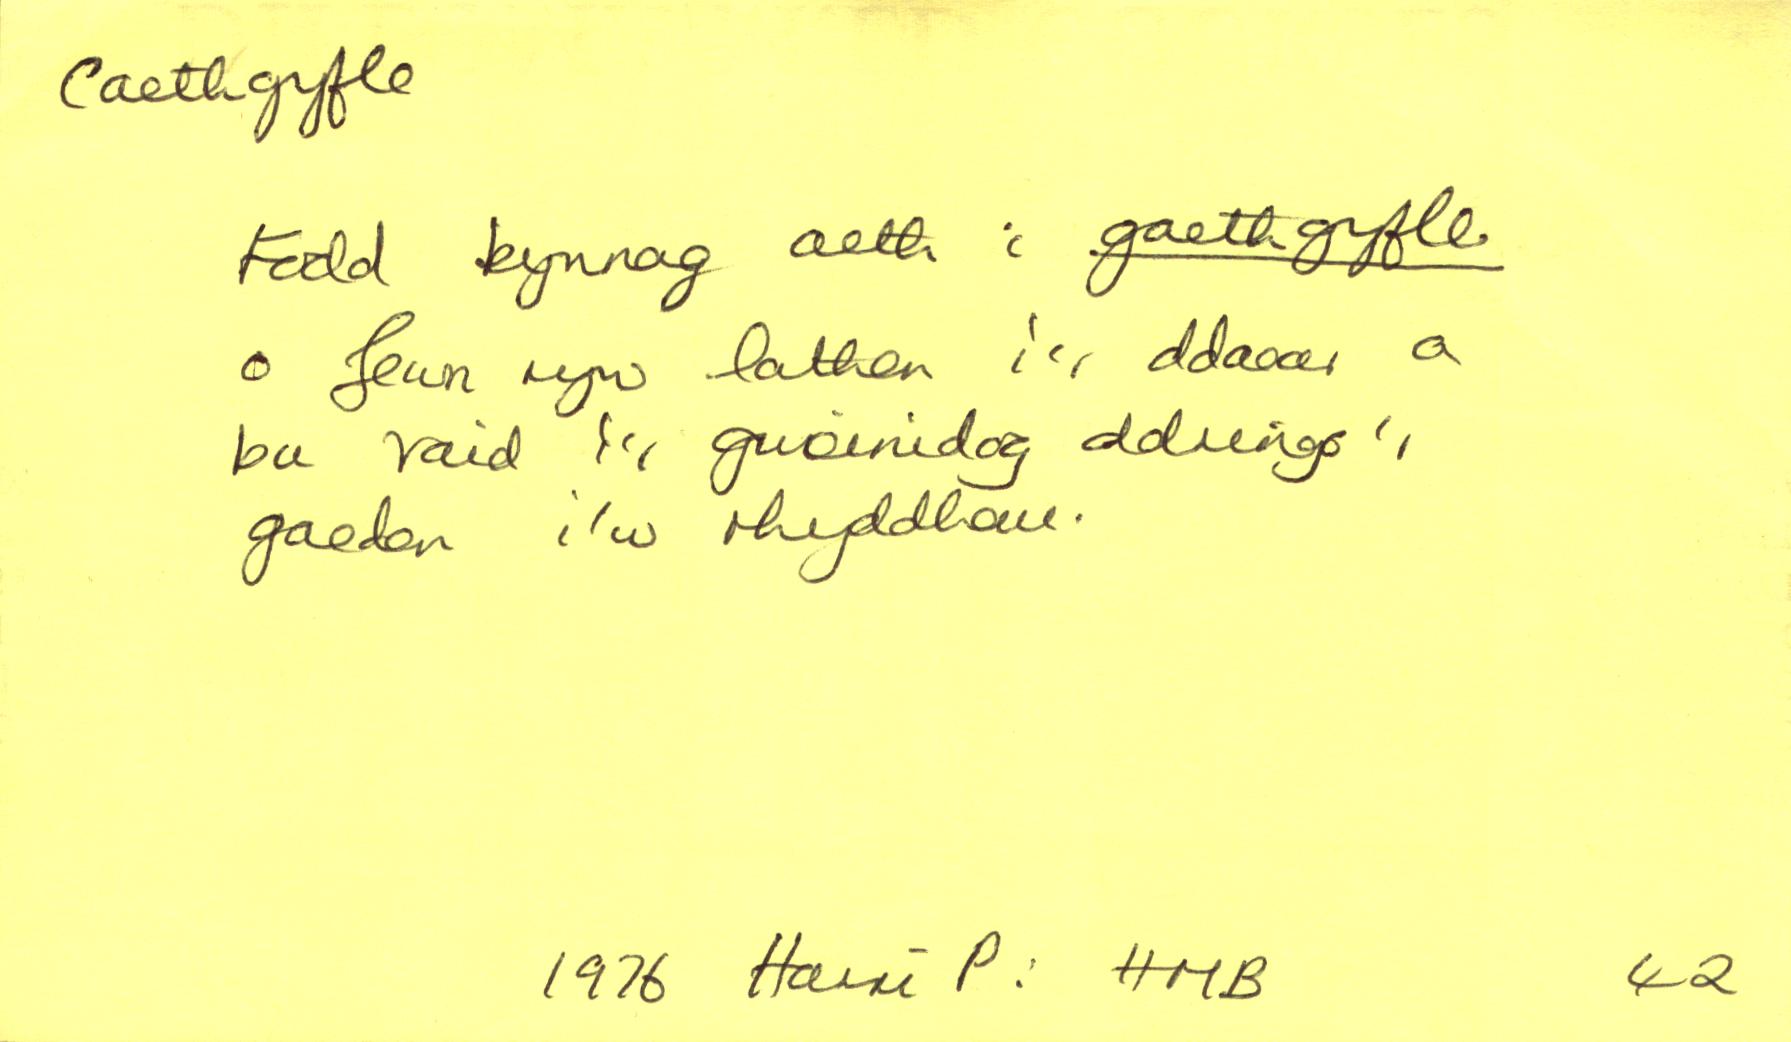 Caethgyfle
Fodd bynnag aeth i gaethgyfle
o fewn ryw lathen i'r ddaear a
bu raid i'r gweinidog ddringo'r
goeden i'w rhyddhau.
1976 Harri P: HMB 42